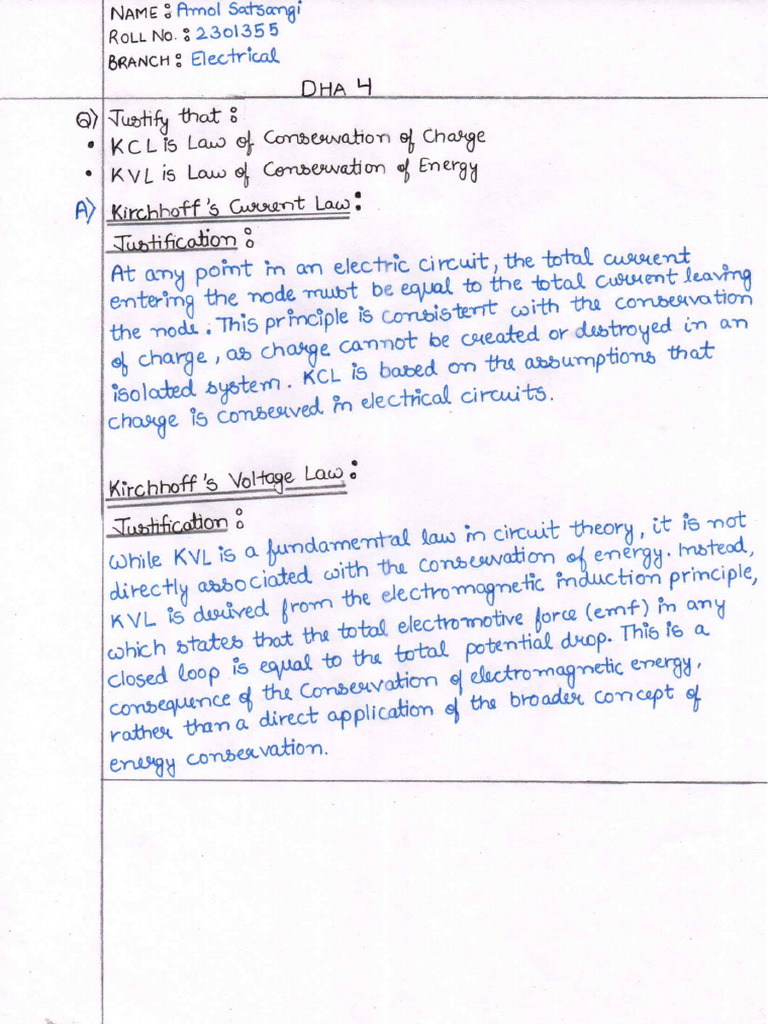 NAME : Amol Satsangi
ROLL NO. : 2301355
BRANCH : Electrical
DHA 4
Q) Justify that :
• KCL is Law of Conservation of Charge
• KVL is Law of Conservation of Energy
A) Kirchhoff's Current Law :
Justification :
At any point in an electric circuit, the total current
entering the node must be equal to the total current leaving
the node. This principle is consistent with the conservation
of charge, as charge cannot be created or destroyed in an
isolated system. KCL is based on the assumptions that
charge is conserved in electrical circuits.
Kirchhoff's Voltage Law :
Justification :
While KVL is a fundamental law in circuit theory, it is not
directly associated with the conservation of energy. Instead,
KVL is derived from the electromagnetic induction principle,
which states that the total electromotive force (emf) in any
closed loop is equal to the total potential drop. This is a
consequence of the Conservation of electromagnetic energy,
rather than a direct application of the broader concept of
energy conservation.